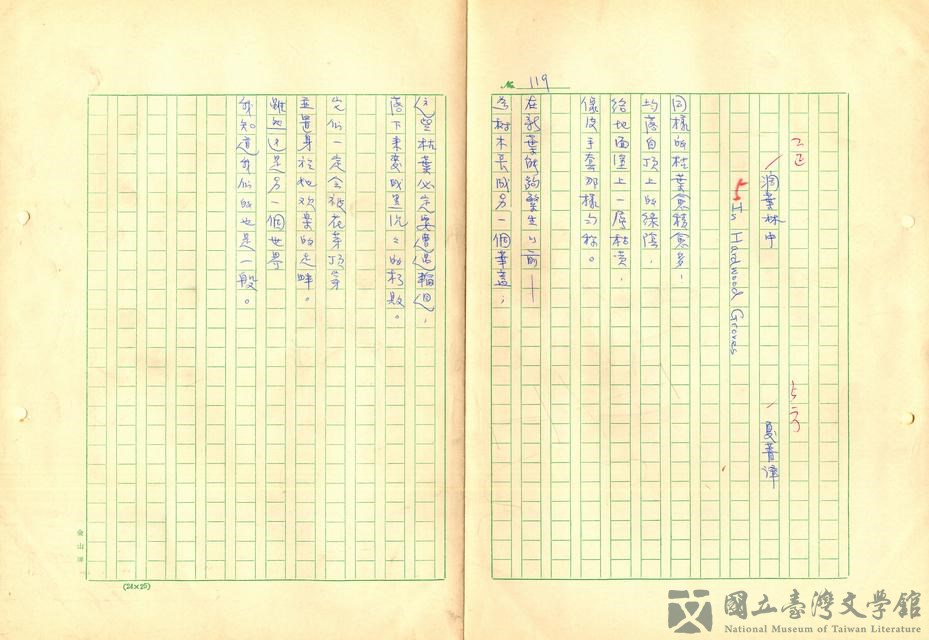 № 119
二正
五号
濶葉林中
夏菁譯
5
Hs Hardwood Groves
同樣的枯葉愈積愈多,
均落自頂上的綠蔭,
給地面塗上一層枯黃,
像皮手套那樣勻稱。
在新葉能夠繁生以前—
為樹木長成另一個華蓋;
這些枯葉必定要遭遇輪回,
落下來變成黑沉沉的朽敗。
它們一定會被花芽頂穿
並置身於她歡樂的足畔。
雖然這是另一個世界
我知道我們的也是一般。
金山牌
(24×25)
國立臺灣文學館
National Museum of Taiwan Literature